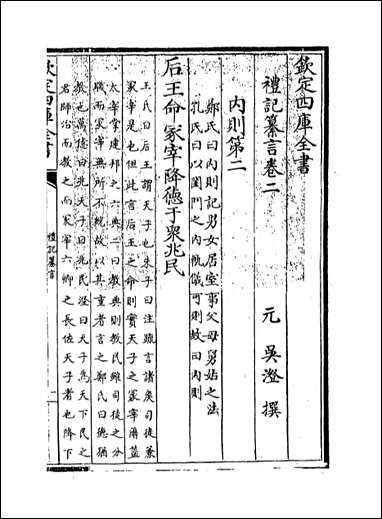 欽定四庫全書
禮記纂言卷二
元 吳澄 撰
內則第二
鄭氏曰內則記男女居室事父母舅姑之法
孔氏曰以閨門之內軌儀可則故曰內則
后王命冢宰降德于衆兆民
王氏曰后王謂天子也朱子曰注疏言諸矦司徒兼
冢宰是也但此言后王之命則實天子之冢宰爾葢
太宰掌建邦之六典二曰教典則教民雖司徒之分
職而冢宰無所不統故以其重者言之鄭氏曰德猶
教也萬億曰兆天子曰兆民澄曰天子為天下民之
君師治而教之而冢宰六卿之長佐天子者也降下
欽定四庫全書
禮記纂言
一